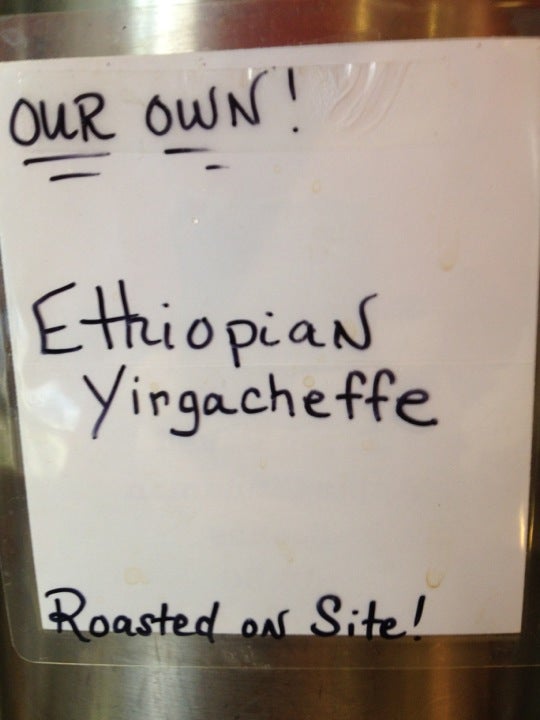 OUR OWN!
Ethiopian
Yirgacheffe
Roasted on Site!